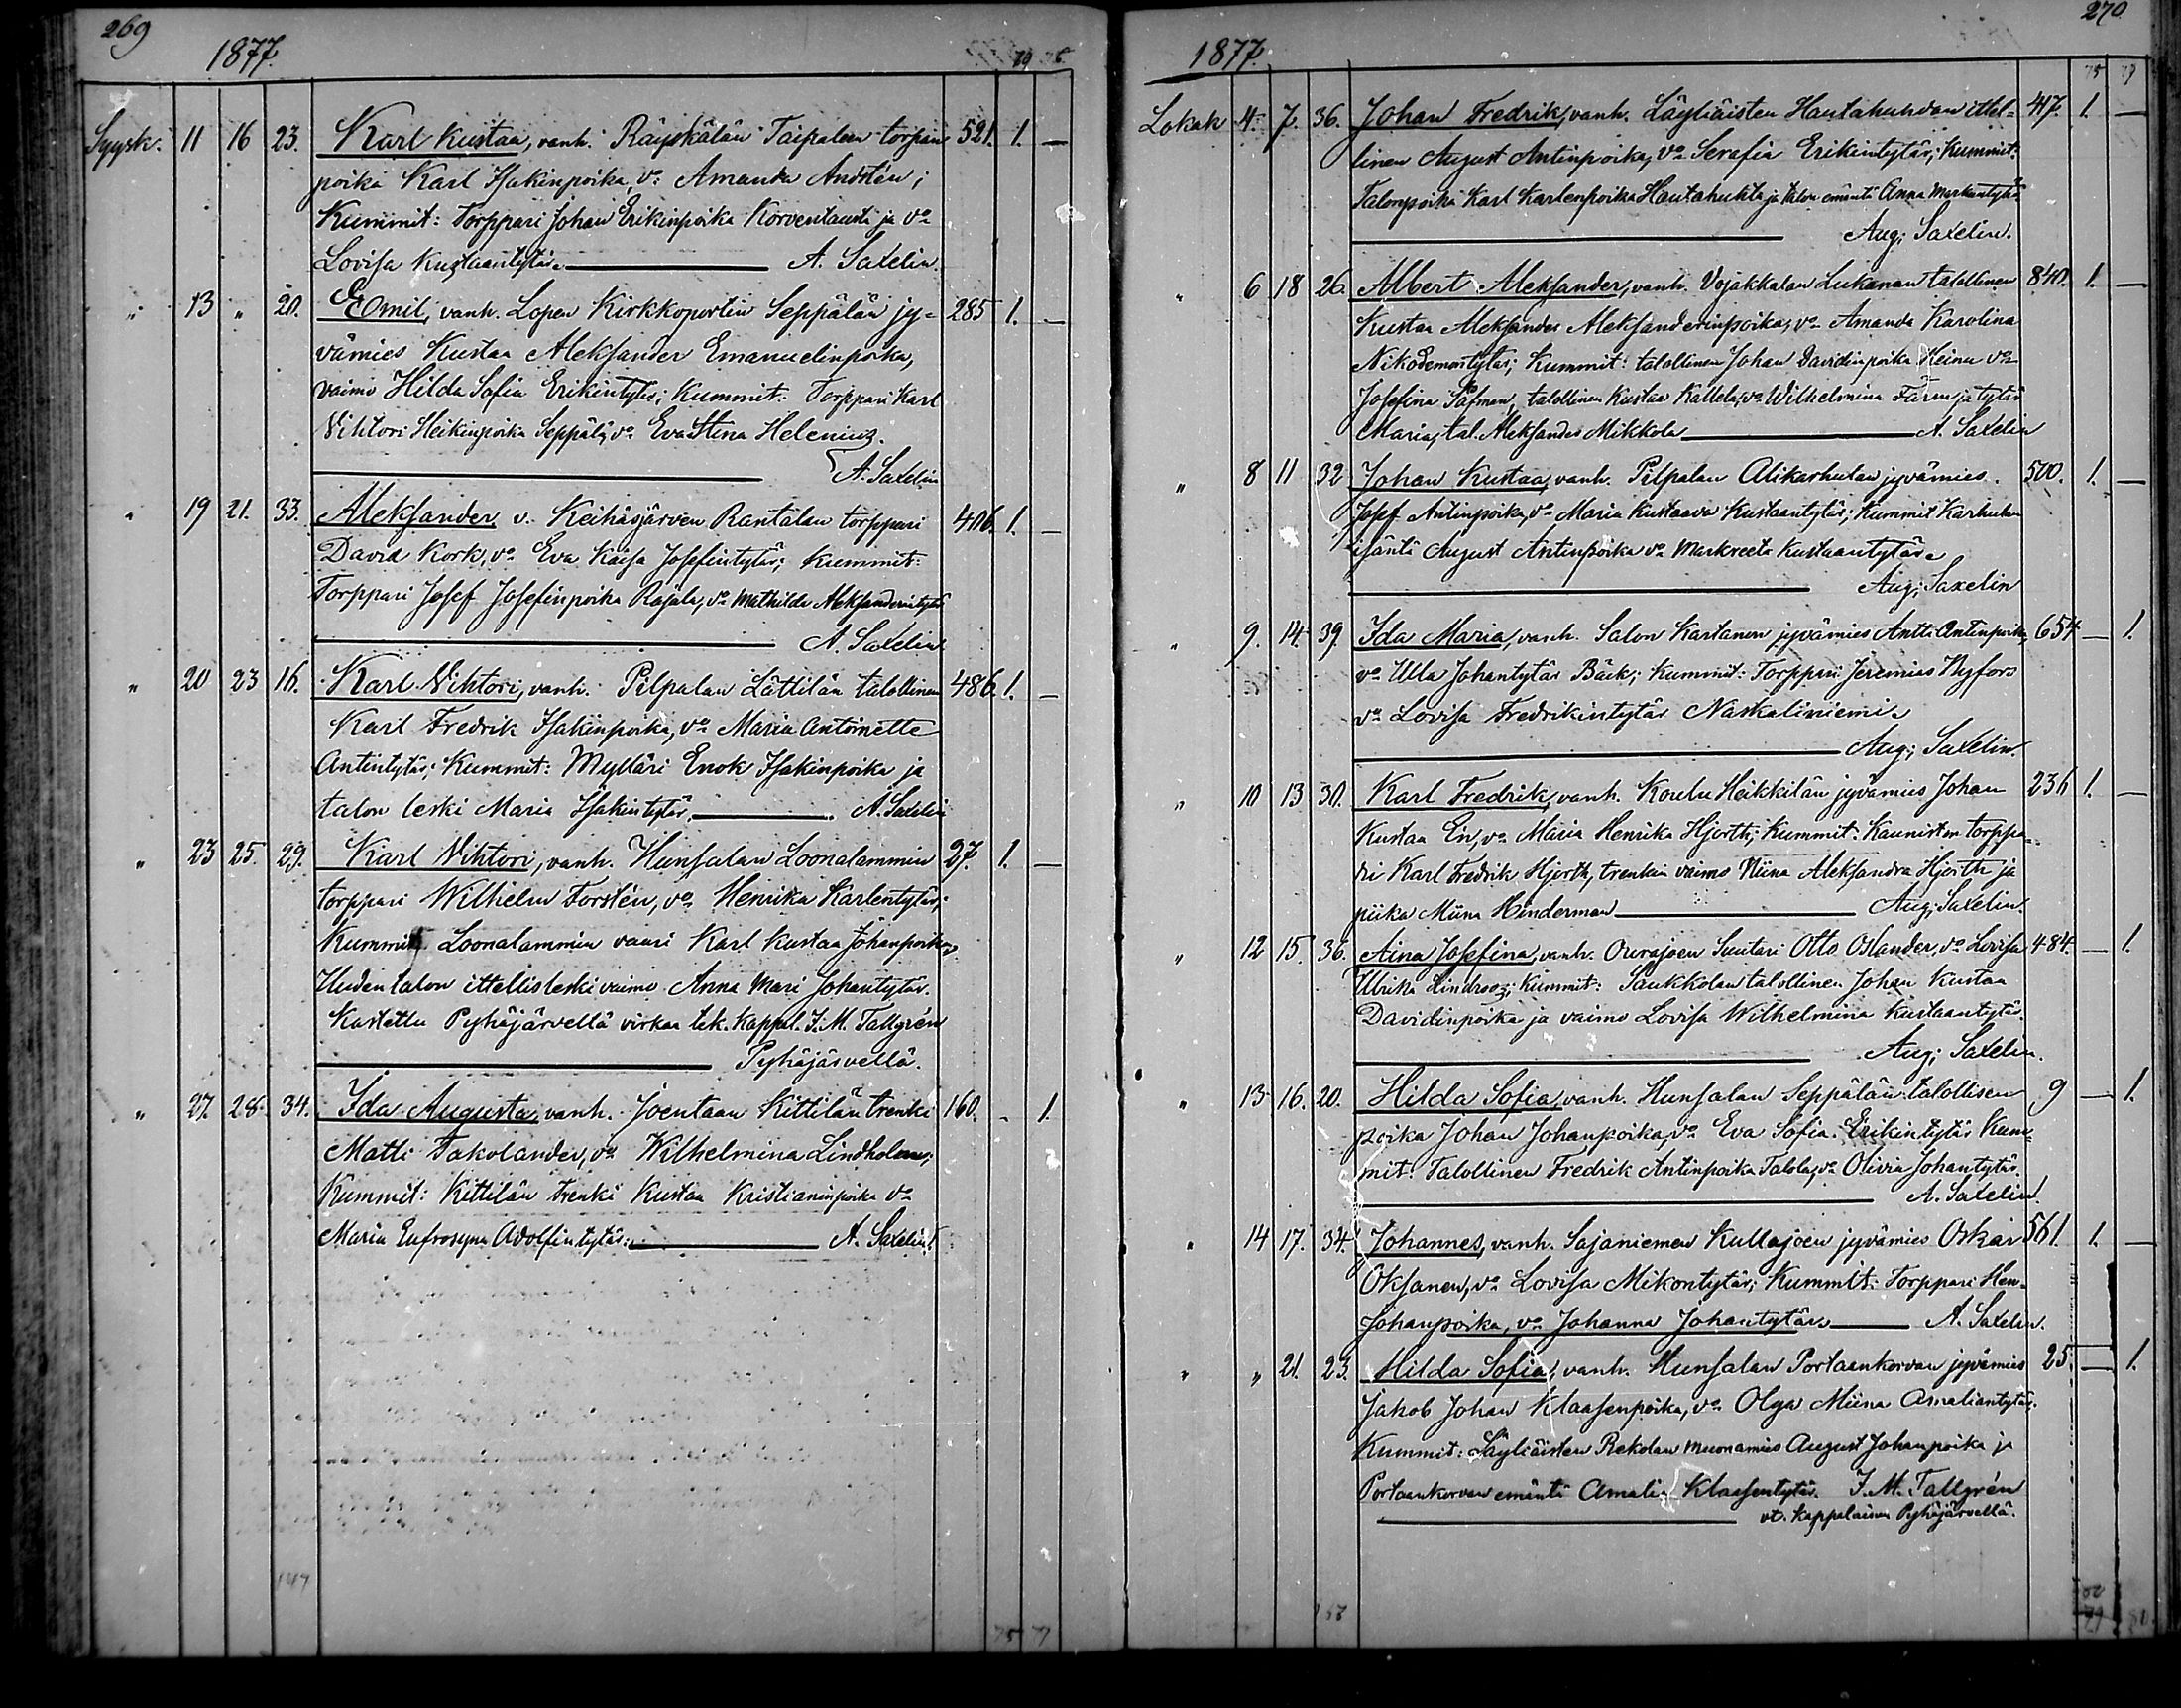 269
1877.
Syysk. 11 16 23. Karl Kustaa, vanh. Räyskälän Taipaleen torpan 521. 1. —
poika Karl Isakinpoika, vo: Amanda Andstén;
Kummit: Torppari Johan Erikinpoika Korventausta ja vo
Lovisa Kustaantytär. A. Saxelin.
" 13 " 20. Emil, vanh. Lopen Kirkkoportin Seppälän jy- 285 1. —
vämies Kustaa Aleksander Emanuelinpoika,
vaimo Hilda Sofia Erikintytär; Kummit: Torppari Karl
Vihtori Heikinpoika Seppälä, vo Eva Stina Helenius.
A. Saxelin
" 19 21. 33. Aleksander v. Keihäsjärven Rantalan torppari 406. 1. —
David Kork, vo Eva Kaisa Josefintytär; Kummit:
Torppari Josef Josefinpoika Rajala, vo Mathilda Aleksanderintytär
A. Saxelin
" 20 23 16. Karl Vihtori, vanh. Pilpalan Lättilän talollinen 486. 1. —
Karl Fredrik Isakinpoika, vo Maria Antoinette
Antintytär; Kummit: Mylläri Enok Isakinpoika ja
talon leski Maria Isakintytär. A. Saxelin
" 23 25. 29. Karl Vihtori, vanh. Hunsalan Loonalammin 27. 1. —
torppari Wilhelm Forstén, vo Henrika Karlentytär;
Kummit: Loonalammin vaari Karl Kustaa Johanpoika
Uudentalon ittellisleskivaimo Anna Mari Johantytär.
Kastettu Pyhäjärvellä virkaa tek. kappal. J. M. Tallgrén
Pyhäjärvellä.
" 27. 28. 34. Ida Augusta, vanh. Joentaan Kittilän trenki 160. - 1.
Matti Takolander, vo Wilhelmina Lindholm;
Kummit: Kittilän trenki Kustaa Kristianinpoika vo
Maria Eufrosyna Adolfintytär. A. Saxelin.
147
75 71
270
1877.
75 79
Lokak 4. 7. 36. Johan Fredrik, vanh. Läyliäisten Hautahuhdan ittel- 417. 1. —
linen August Antinpoika, vo Serafia Erikintytär; Kummit:
Talonpoika Karl Karlenpoika Hautahuhta ja talon emäntä Anna Markuntytär
Aug; Saxelin.
" 6 18 26. Albert Aleksander, vanh. Vojakkalan Lukanan talollinen 840. 1. —
Kustaa Aleksander Aleksanderinpoika, vo Amanda Karolina
Nikodemontytär; Kummit: talollinen Johan Davidinpoika Heinu vo
Josefina Säfman, talollinen Kustaa Kallela, vo Wilhelmina Färm ja tytär
Maria, tal. Aleksander Mikkola A. Saxelin
" 8 11 32 Johan Kustaa, vanh. Pilpalan Alikarhulan jyvämies 500. 1. —
Josef Antinpoika, vo Maria Kustaava Kustaantytär; Kummit Karhulan
isäntä August Antinpoika vo Markreeta Kustaantytär.
Aug; Saxelin
" 9. 14. 39. Ida Maria, vanh. Salon Kartanon jyvämies Antti Antinpoika, 654 — 1.
vo Ulla Johantytär Bäck; Kummit: Torppari Jeremias Nyfors
vo Lovisa Fredrikintytär Naskaliniemi.
Aug; Saxelin.
" 10 13 30. Karl Fredrik, vanh. Koulu Heikkilän jyvämies Johan 236 1. —
Kustaa En, vo Maria Henrika Hjorth; Kummit: Kauniston torppa-
ri Karl Fredrik Hjorth, trenkin vaimo Miina Aleksandra Hjorth ja
piika Miina Hinderman Aug; Saxelin.
" 12 15. 36. Aina Josefina, vanh. Ourajoen Suutari Otto Oslander, vo Lovisa 484. — 1.
Ulrika Lindroos; Kummit: Saukkolan talollinen Johan Kustaa
Davidinpoika ja vaimo Lovisa Wilhelmina Kustaantytär.
Aug; Saxelin.
" 13 16. 20. Hilda Sofia, vanh. Hunsalan Seppälän talollisen 9 — 1.
poika Johan Johanpoika, vo Eva Sofia Erikintytär Kum-
mit: Talollinen Fredrik Antinpoika Talola, vo Olivia Johantytär.
A. Saxelin.
" 14 17. 34. Johannes, vanh. Sajaniemen Kullajoen jyvämies Oskar 561. 1. —
Oksanen, vo Lovisa Mikontytär; Kummit: Torppari Hen.
Johanpoika, vo Johanna Johantytär. A. Saxelin.
" " 21. 23. Hilda Sofia, vanh. Hunsalan Portaankorvan jyvämies 25. — 1.
Jakob Johan Klaasenpoika, vo Olga Miina Amaliantytär.
Kummit: Läyliäisten Rekolan muonamies August Johanpoika ja
Portaankorvan emäntä Amalia Klaasentytär. J. M. Tallgrén
vt. kappalainen Pyhäjärvellä.